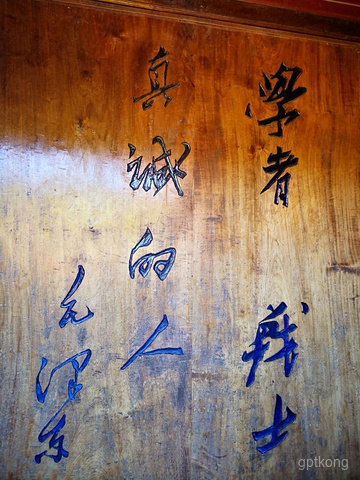 學者 戰士
真誠的人
毛澤东
gptkong